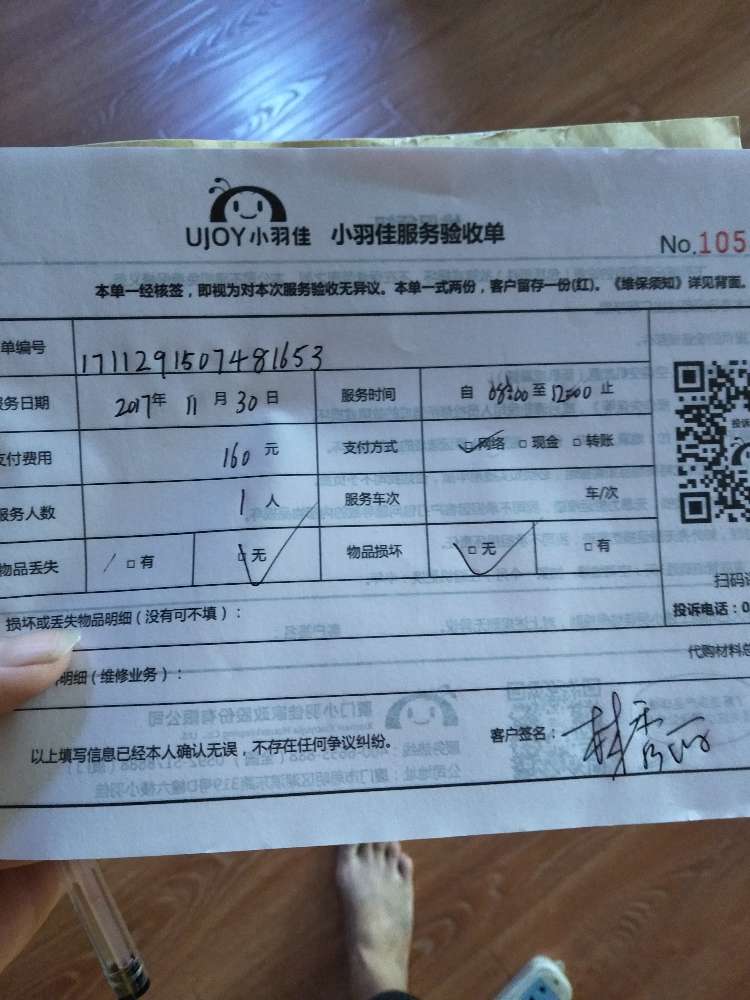 UJOY小羽佳 小羽佳服务验收单
No.105
本单一经核签，即视为对本次服务验收无异议。本单一式两份，客户留存一份(红)。《维保须知》详见背面。
单编号 1711291507481653
服务日期 2017年 11 月 30 日 服务时间 自 08:00 至 12:00 止
支付费用 160 元 支付方式 □网络 □现金 □转账
服务人数 1 人 服务车次 车/次
物品丢失 □有 □无 物品损坏 □无 □有
投诉
扫码
损坏或丢失物品明细（没有可不填）：
投诉电话：0
明细（维修业务）：
代购材料总
以上填写信息已经本人确认无误，不存在任何争议纠纷。
客户签名：林秀